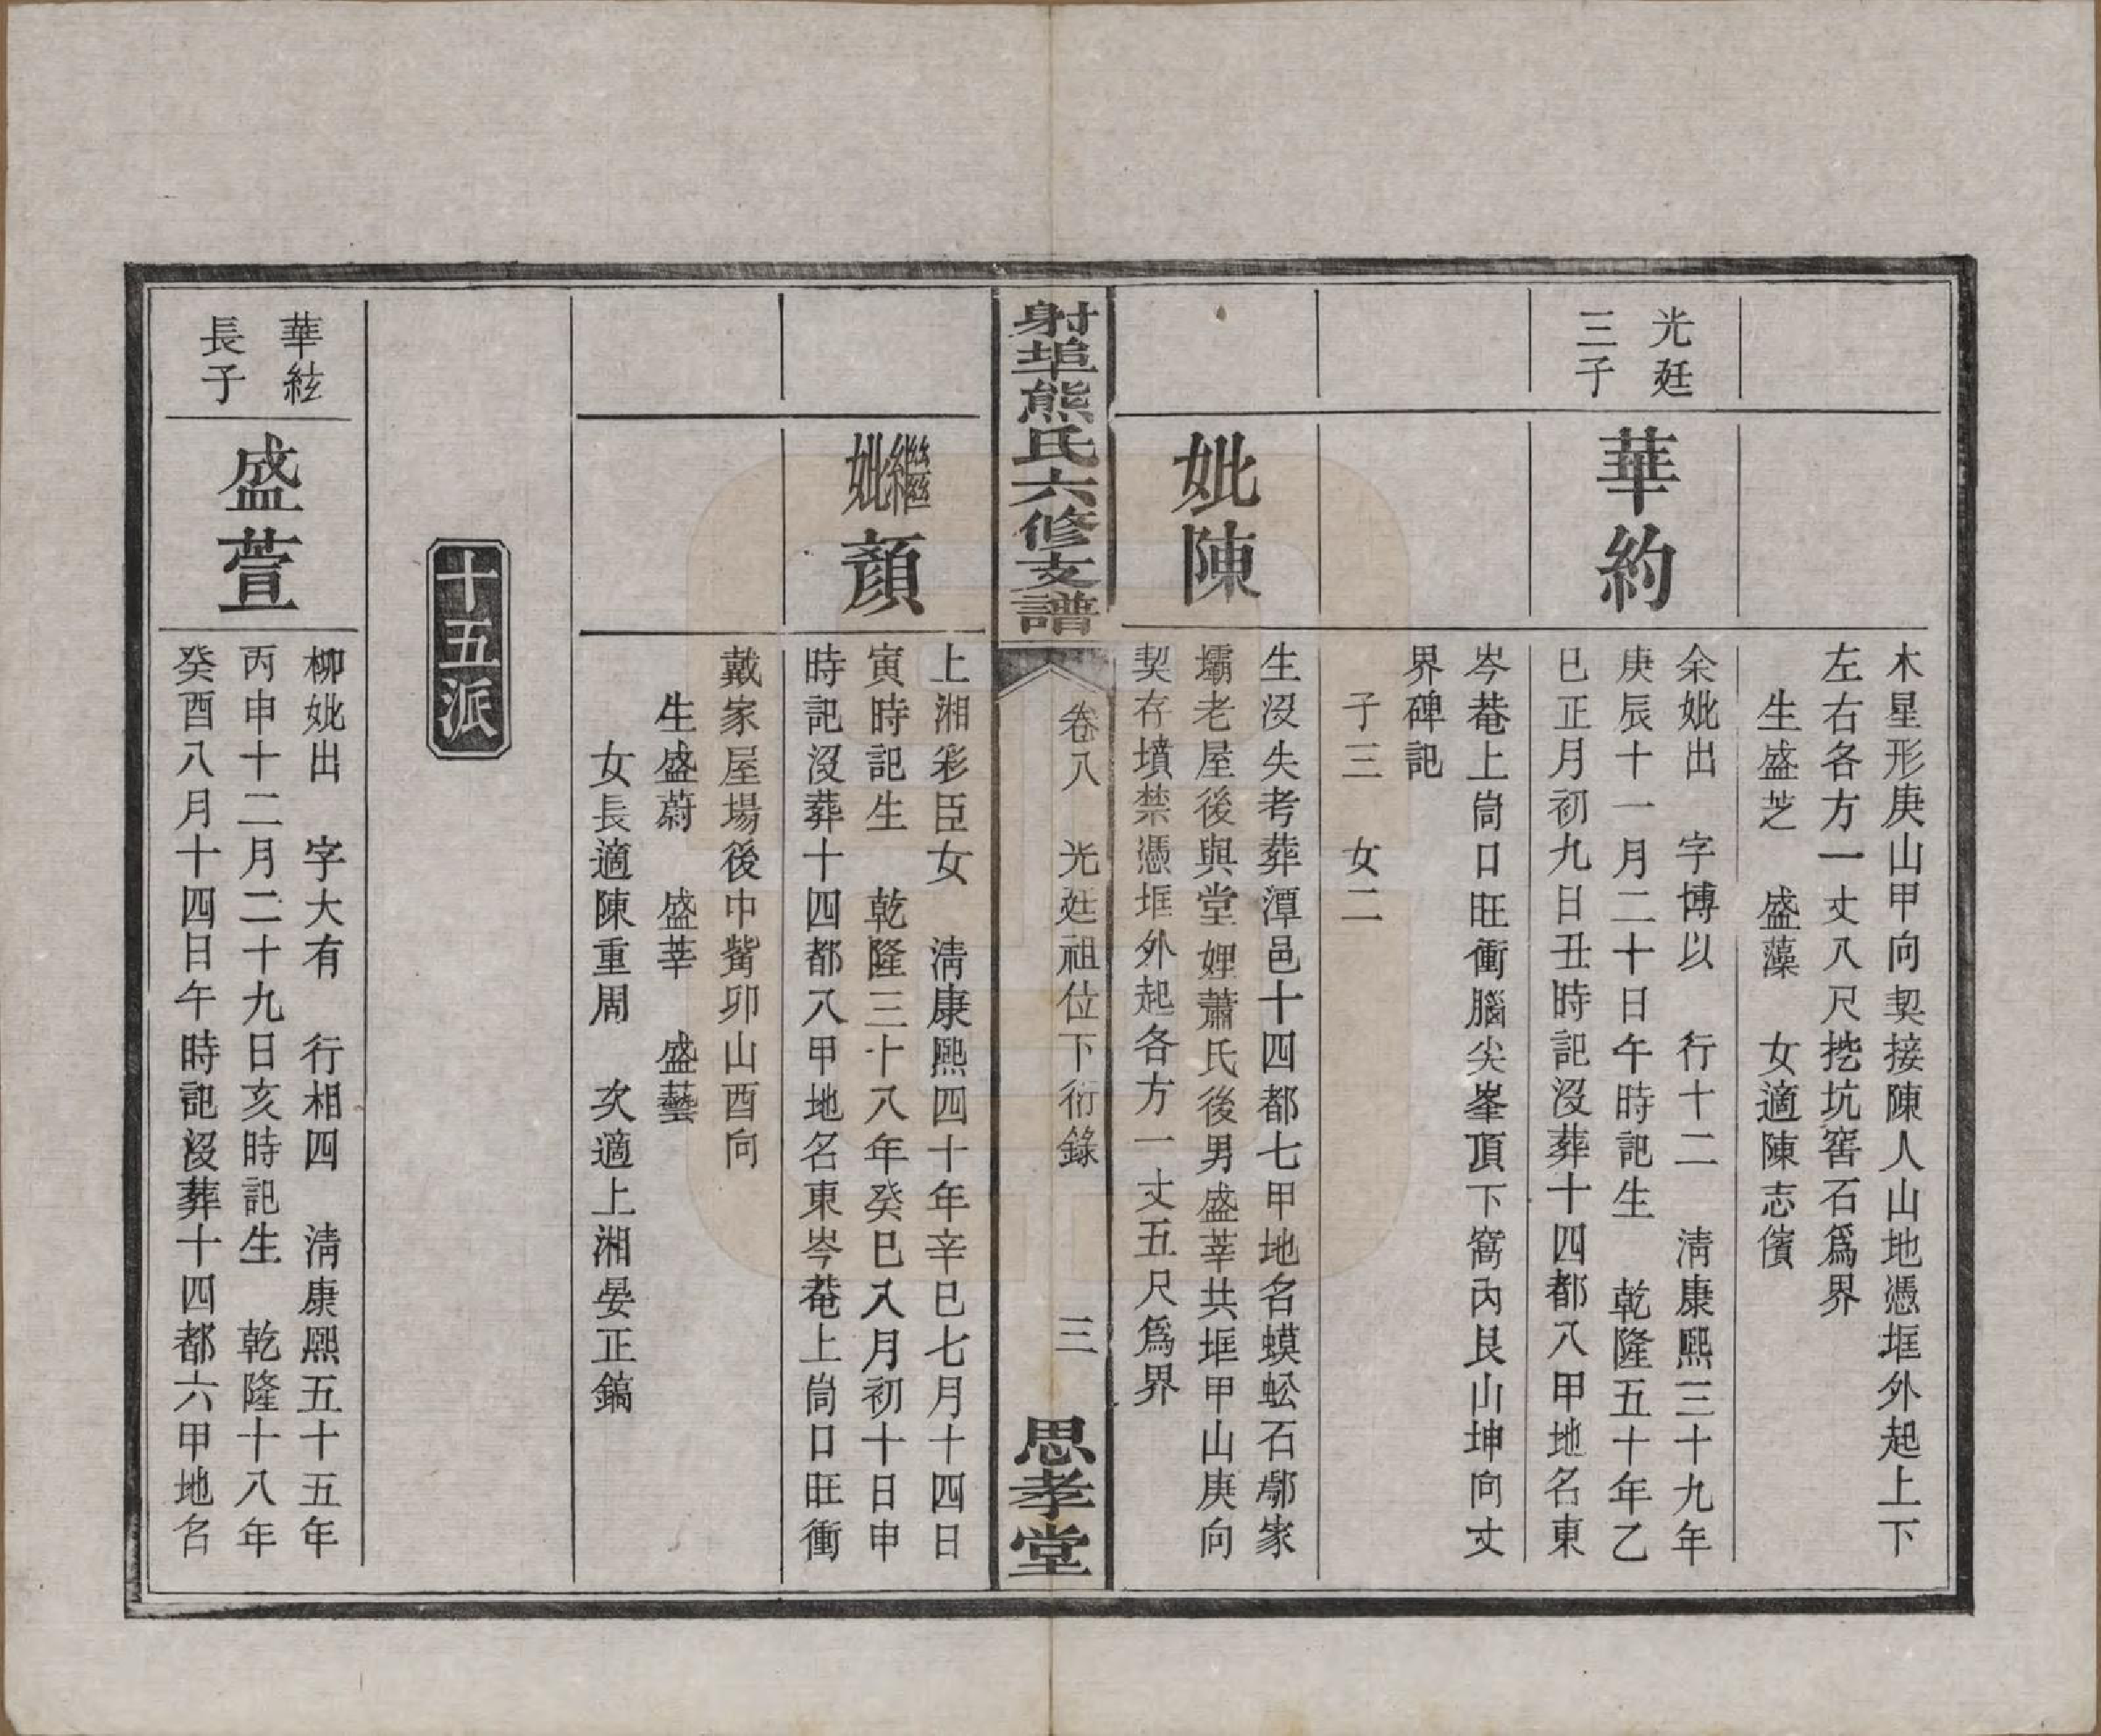 木星形庚山甲向契接陳人山地憑堆外起上下
左右各方一丈八尺挖坑窖石爲界
生盛芝　盛藻　女適陳志儐
光廷
三子
華約
余妣出　字博以　行十二　清康熙三十九年
庚辰十一月二十日午時記生　乾隆五十年乙
巳正月初九日丑時記沒葬十四都八甲地名東
岑菴上筒口旺衝腦尖峯頂下窩內艮山坤向丈
界碑記
子三　女二
妣陳
生沒失考葬潭邑十四都七甲地名蟆蚣石鄢家
壩老屋後與堂娌蕭氏後男盛莘共堆甲山庚向
契存墳禁憑堆外起各方一丈五尺爲界
射埠熊氏六修支譜
卷八　光廷祖位下衍錄
三
思孝堂
繼妣顏
上湘彩臣女　清康熙四十年辛巳七月十四日
寅時記生　乾隆三十八年癸巳八月初十日申
時記沒葬十四都八甲地名東岑菴上筒口旺衝
戴家屋場後中觜卯山酉向
生盛蔚　盛莘　盛藝
女長適陳重周　次適上湘晏正鎬
十五派
華絃
長子
盛萱
柳妣出　字大有　行相四　清康熙五十五年
丙申十二月二十九日亥時記生　乾隆十八年
癸酉八月十四日午時記沒葬十四都六甲地名